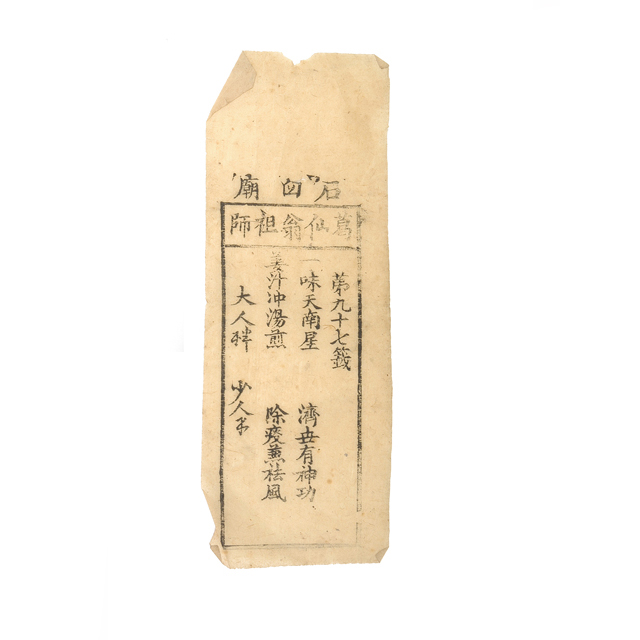 石四廟
葛仙翁祖師
第九十七籤
一味天南星 濟世有神功
姜汁冲湯煎 除疫兼祛風
大人 少人